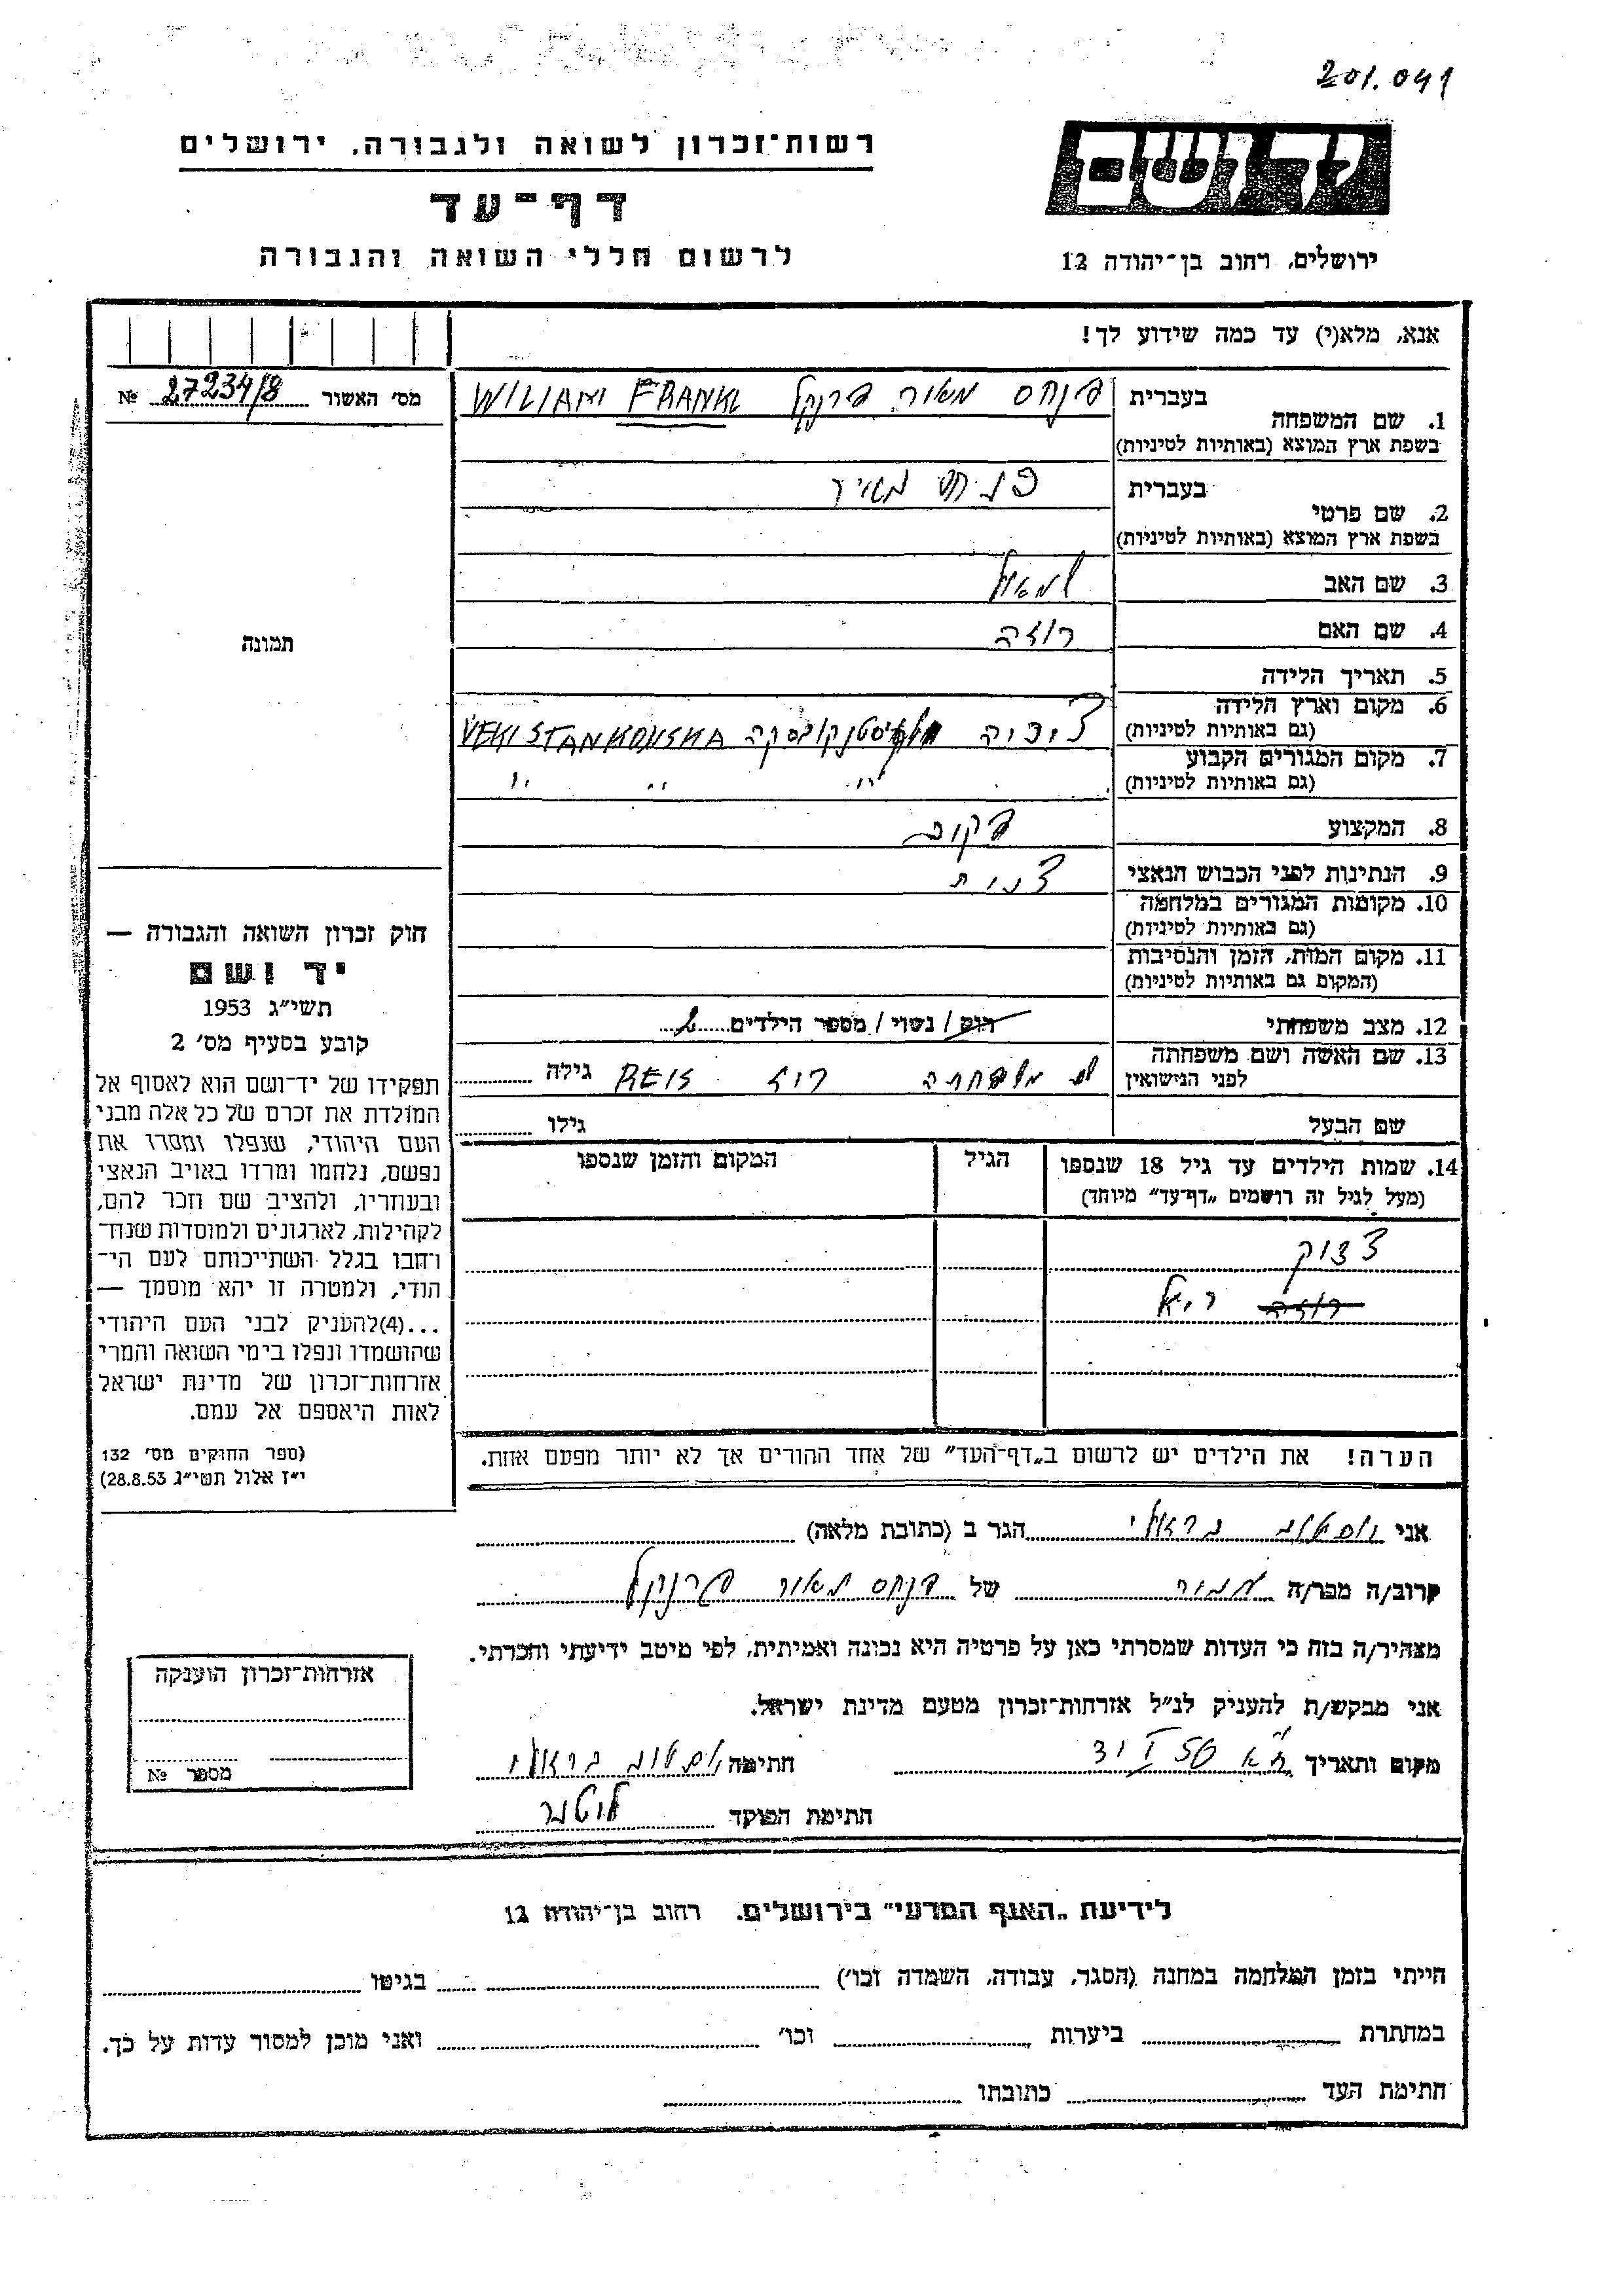 201.041
יד ושם
רשות־זכרון לשואה ולגבורה, ירושלים
דף־עד
לרשום חללי השואה והגבורה
ירושלים, רחוב בן־יהודה 12
אנא, מלא(י) עד כמה שידוע לך!
מס' האשור 27234/8 №
תמונה
חוק זכרון השואה והגבורה —
יד ושם
תשי״ג 1953
קובע בסעיף מס' 2
תפקידו של יד־ושם הוא לאסוף אל
המולדת את זכרם של כל אלה מבני
העם היהודי, שנפלו ומסרו את
נפשם, נלחמו ומרדו באויב הנאצי
ובעוזריו, ולהציב שם וזכר להם,
לקהילות, לארגונים ולמוסדות שנח־
רחבו בגלל השתייכותם לעם הי־
הודי, ולמטרה זו יהא מוסמך —
...(4)להעניק לבני העם היהודי
שהושמדו ונפלו בימי השואה והמרי
אזרחות־זכרון של מדינת ישראל
לאות היאספם אל עמם.
(ספר החוקים מס' 132
י״ז אלול תשי״ג 28.8.53)
בעברית פנחס מאור פרנקל WILIAM FRANKL
1. שם המשפחה
בשפת ארץ המוצא (באותיות לטיניות)
בעברית פנחס מאיר
2. שם פרטי
בשפת ארץ המוצא (באותיות לטיניות)
3. שם האב
4. שם האם רוזה
5. תאריך הלידה
6. מקום וארץ הלידה
(גם באותיות לטיניות)
7. מקום המגורים הקבוע " " "
(גם באותיות לטיניות)
8. המקצוע
9. הנתינות לפני הכבוש הנאצי
10. מקומות המגורים במלחמה
(גם באותיות לטיניות)
11. מקום המות, הזמן והנסיבות
(המקום גם באותיות לטיניות)
12. מצב משפחתי רווק / נשוי / מספר הילדים 2
13. שם האשה ושם משפחתה שם משפחתה רוז REIS גילה
לפני הנישואין
שם הבעל גילו
14. שמות הילדים עד גיל 18 שנספו הגיל המקום והזמן שנספו
(מעל לגיל זה רושמים „דף־עד״ מיוחד)
רוזה
הערה! את הילדים יש לרשום ב„דף־העד״ של אחד ההורים אך לא יותר מפעם אחת.
אני הגר ב (כתובת מלאה)
קרוב/ה מכר/ה של פנחס מאור פרנקל
מצהיר/ה בזה כי העדות שמסרתי כאן על פרטיה היא נכונה ואמיתית, לפי מיטב ידיעתי והכרתי.
אני מבקש/ת להעניק לנ״ל אזרחות־זכרון מטעם מדינת ישראל.
מקום ותאריך חתימה
חתימת הפוקד
אזרחות־זכרון הוענקה
מספר №
לידיעת „האגף המדעי״ בירושלים. רחוב בן־יהודה 12
הייתי בזמן המלחמה במחנה (הסגר, עבודה, השמדה וכו') בגיטו
במחתרת ביערות וכו' ואני מוכן למסור עדות על כך.
חתימת העד כתובתו